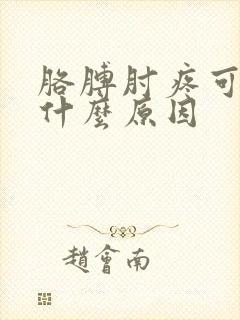 胳膊肘疼可
什麼原因
趙會南